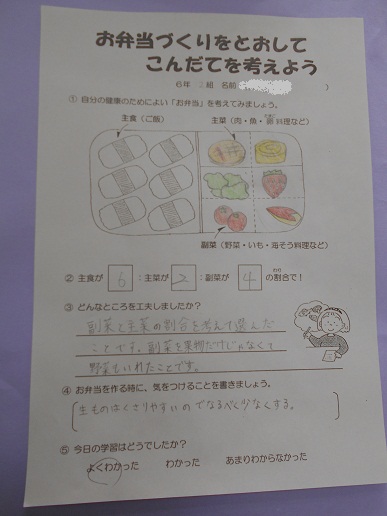 お弁当づくりをとおして
こんだてを考えよう
6年 組 名前 )
① 自分の健康のためによい「お弁当」を考えてみましょう。
主食(ご飯) 主菜(肉・魚・卵料理など)
副菜(野菜・いも・海そう料理など)
② 主食が 6 :主菜が 2 :副菜が 4 の割合で!
③ どんなところを工夫しましたか?
副菜と主菜の割合を考えて選んだ
ことです。副菜を果物だけじゃなくて
野菜もいれたことです。
④ お弁当を作る時に、気をつけることを書きましょう。
(生ものはくさりやすいのでなるべく少なくする。)
⑤ 今日の学習はどうでしたか?
よくわかった わかった あまりわからなかった